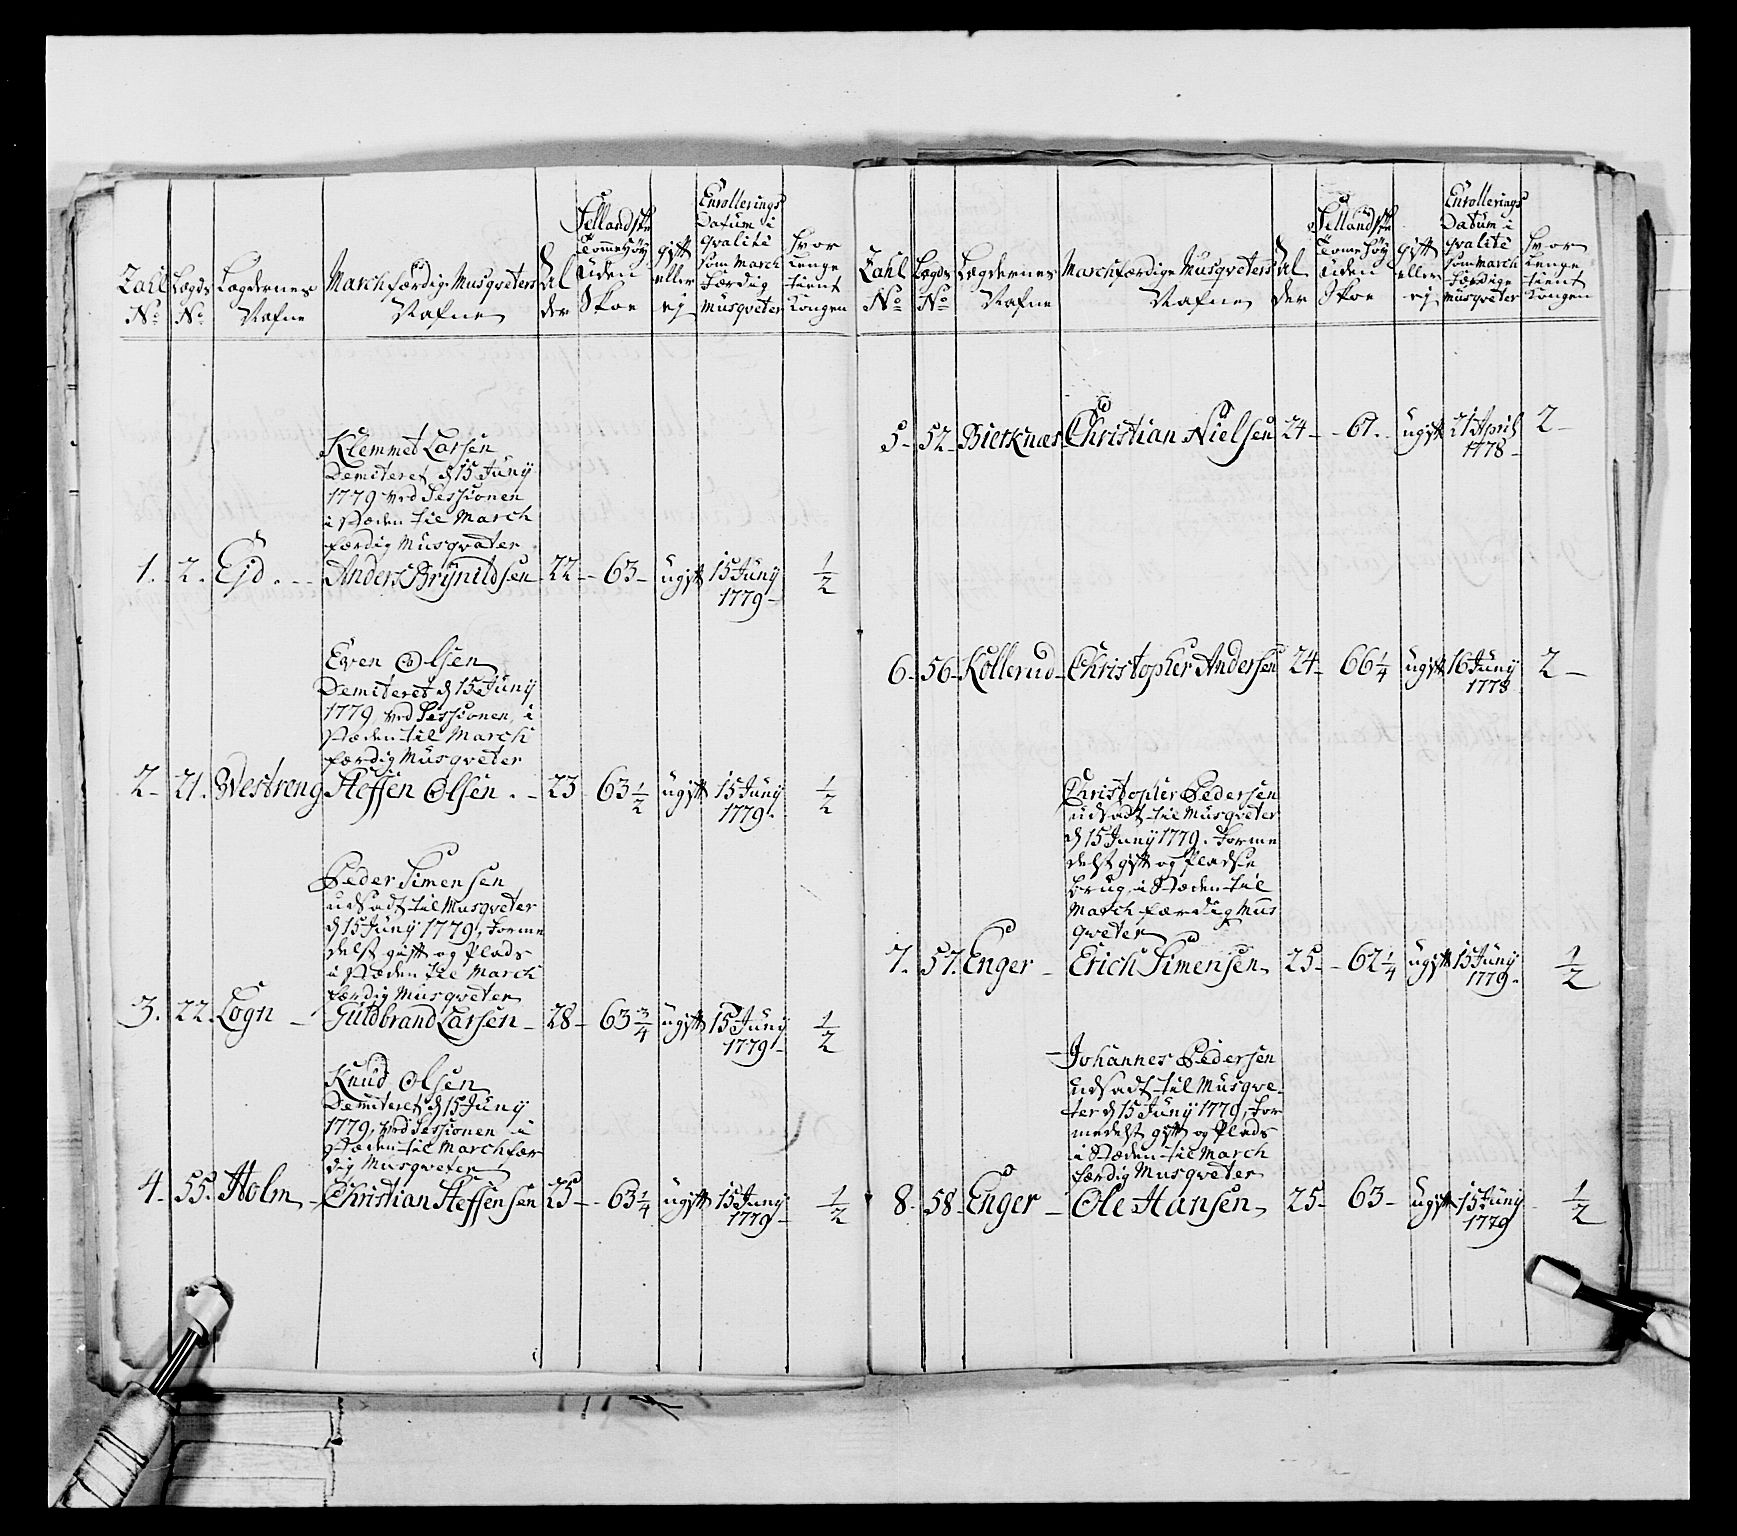 Zahl No | Lægds No | Lægdernes Nafne | Marchfærdige Musqveters Nafne | Al der | Sellandske Tomme Høy Uden Skoe | gift eller ej | Enrollerings Datum i qvalite som March Færdig Musqveter | hvor Lenge tient Kongen
Klemmet Larsen
Demiteret d 15 Juny
1779 ved Sessionen
i Stæden til March
færdig Musqvater
1. 2. Ejd. Anders Brynildsen 22 - 63 - ugift 15 Juny 1779 - 1/2
Even Olsen
Demiteret d 15 Juny
1779, ved Sessionen, i
Stæden til March
færdig Musqveter
2 - 21. Westreng Steffen Olsen. - 23 63 1/2 ugift 15 Juny 1779. 1/2
Peder Simensen
udsadt til Musqveter
d 15 Juny 1779, Forme
delst gift og Plads
i Stæden til March
færdig Musqveter
3. 22. Logn - Guldbrand Larsen - 28 - 63 3/4 ugift 15 Juny 1779 - 1/2
Knud Olsen
Demiteret d 15 Juny
1779, ved Sessionen i
Stæden til Marchfær
dig Musqveter
4. 55. Holm - Christian Steffensen 25 - 63 1/4 ugift 15 Juny 1779 - 1/2
Zahl No | Lægds No | Lægdernes Nafne | Marchfærdige Musqveters Nafne | Al der | Sellandske Tome høy uden Skoe | gift eller ej | Enrollerings Datum i qvalite som March Færdige Musqveter | hvor Lenge tient Kongen
5 - 52 - Bierknæs Christian Nielsen 24 - 67. ugift 21 April 1778 - 2 -
6 - 56 - Kollerud - Christopher Andersen 24 - 66 1/4 ugift 16 Juny 1778 2 -
Christopher Pedersen
udsadt til Musqveter
d 15 Juny 1779. Forme
delst gift og Pladse
brug, i Stæden til
March færdig Mus
qveter
7. 57. Enger - Erich Simensen - 25 - 62 1/4 ugift 15 Juny 1779 - 1/2
Johannes Pedersen
udsadt til Musqve-
ter d 15 Juny 1779, For
medelst gift og Plads
i Stæden til March
færdig Musqveter
8. 58 - Enger - Ole Hansen - 25 - 63 - ugift 15 Juny 1779 1/2